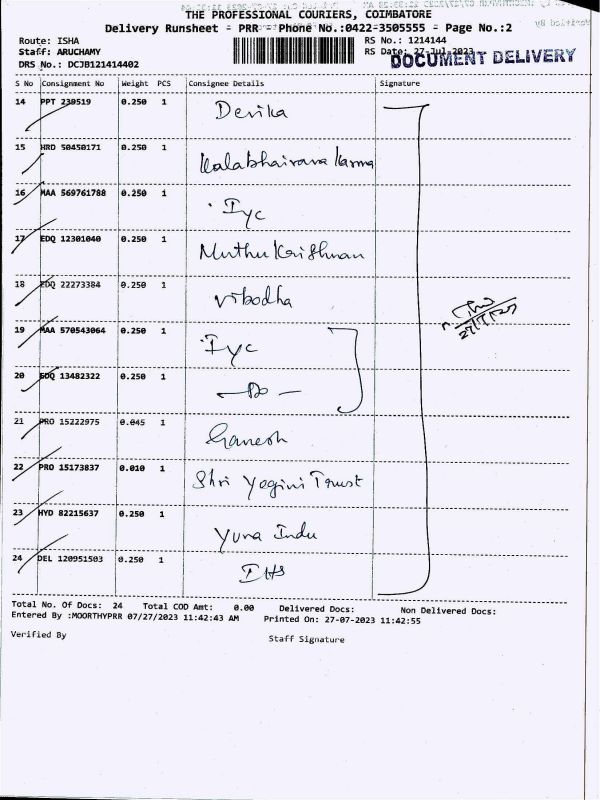 THE PROFESSIONAL COURIERS, COIMBATORE
Delivery Runsheet - PRR - Phone No.:0422-3505555 - Page No.:2
Route: ISHA RS No.: 1214144
Staff: ARUCHAMY RS Date: 27-Jul-2023
DRS No.: DCJB121414402 DOCUMENT DELIVERY
S No Consignment No Weight PCS Consignee Details Signature
14 PPT 239519 0.250 1 Devika
15 HRD 50450171 0.250 1 Kalabhairava Karma
16 MAA 569761788 0.250 1 Iyc
17 EDQ 12301040 0.250 1 Muthu Krishnan
18 EDQ 22273384 0.250 1 Vibodha
19 MAA 570543064 0.250 1 Iyc
20 EDQ 13482322 0.250 1 —Do—
21 PRO 15222975 0.045 1 Ganesh
22 PRO 15173837 0.010 1 Shri Yogini Trust
23 HYD 82215637 0.250 1 Yuva Indu
24 DEL 120951503 0.250 1 IHS
Total No. Of Docs: 24 Total COD Amt: 0.00 Delivered Docs: Non Delivered Docs:
Entered By :MOORTHYPRR 07/27/2023 11:42:43 AM Printed On: 27-07-2023 11:42:55
Verified By Staff Signature